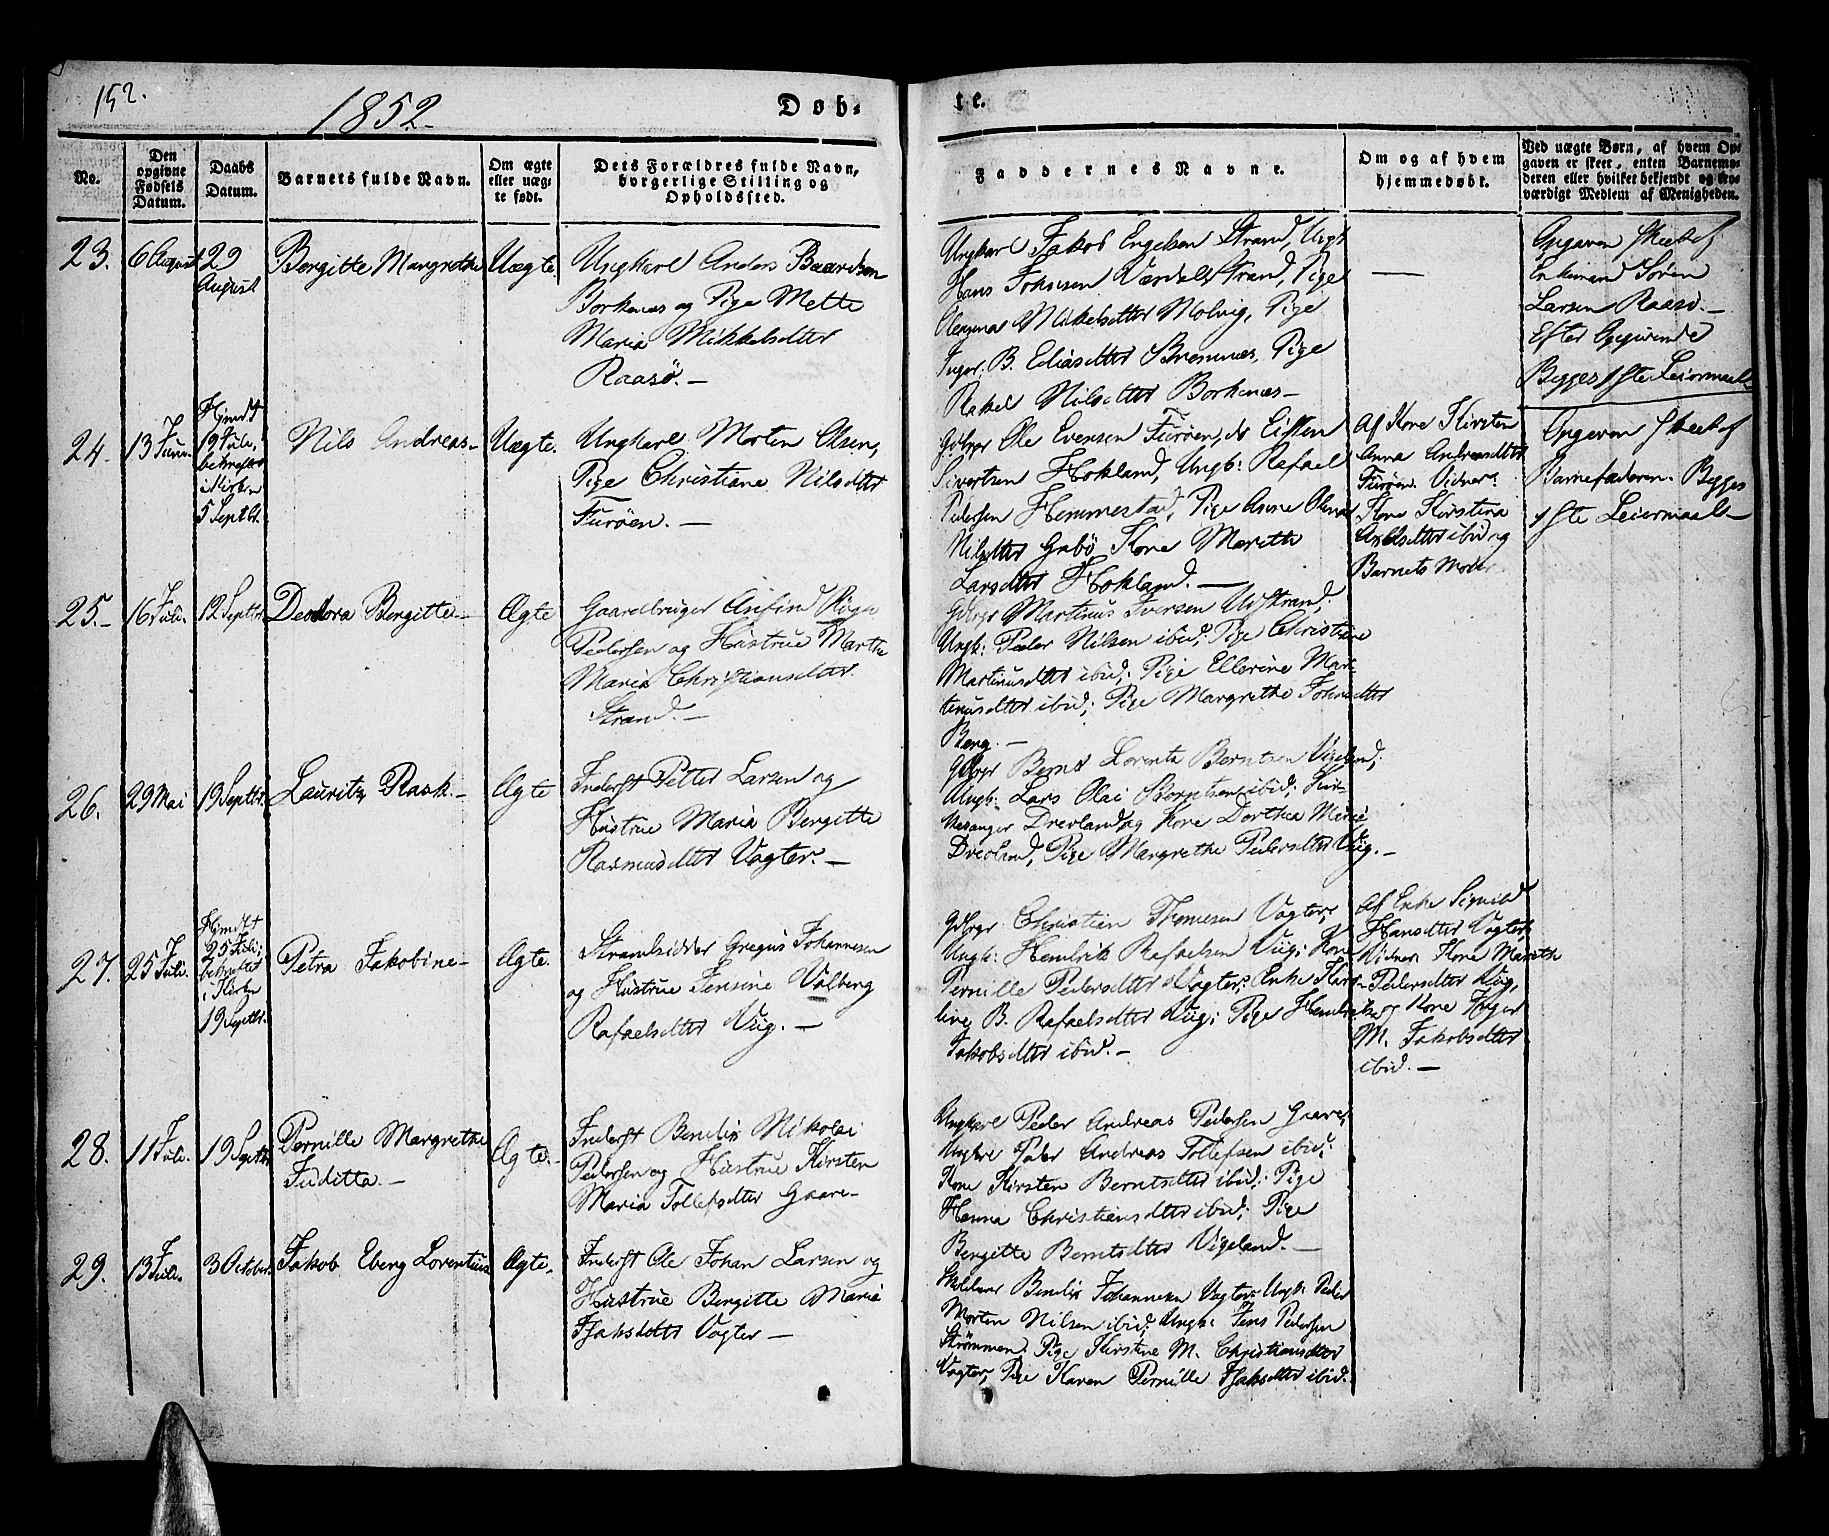 152.
1852.
Døb-
te.
No.
Den
opgivne
Fødsels
Datum.
Daabs
Datum.
Barnets fulde Navn.
Om ægte
eller uæg-
te født.
Dets Forældres fulde Navn,
borgerlige Stilling og
Opholdssted.
Faddernes Navne.
Om og af hvem
hjemmedøbt.
Ved uægte Børn, af hvem Op-
gaven er skeet, enten Barnemo-
deren eller hvilket bekjendt og tro-
værdigt Medlem af Menigheden.
23.
6 August
29
August
Bergitte Margrethe
Uægte
Ungkarl Anders Baardsen
Borkenæs og Pige Mette
Maria Mikkelsdtter
Raasö. —
Ungkarl Jakob Engelsen Strand, Ungk
Hans Johnsen Strand, Pige
Mikkelsdtter Molvig, Pige
Inger B. Eliasdtter Bremnes, Pige
Rakel Nilsdtter Borkenæs —
—
Opgaven skeet af
Enkemand Sören
Larsen Raasö. —
Efter Opgivende
Begges 1ste Leiermaal
24.
13 Juni
Hjmdt
19 Juli,
bekræftet
i Kirken
5 Septbr.
Nils Andreas —
Uægte.
Ungkarl Morten Olsen,
Pige Christiane Nilsdtter
Furöen. —
Gdbrgr Ole Evensen Furöen, do
Sivertsen Hokland, Ungk: Rafael
Pedersen Hemmestad, Pige Anne
Nilsdtter Grbö, Kone Marithe
Larsdtter Hokland. —
Af Kone Kirsten
Anna Andreasdtter
Furöen. Vidner:
Kone Kirstina
ibid og
Barnets Moder
Opgaven skeet af
Barnefaderen. Begges
1ste Leiermaal —
25. —
16 Juli.
12 Septbr
Deodora Bergitte —
Ægte
Gaardbruger Arfind
Pedersen og Hustrue Marthe
Maria Christiansdtter
Strand. —
Gdbrgr Martinus Iversen Strand;
Ungk: Peder Nilsen ibid; Pige Christine
Martinusdtter ibid; Pige Ellerine Mar-
tinusdtter ibid; Pige Margrethe Johnsdtter
Berg. —
26.
29 Mai
19 Septbr.
Lauritz Rask. —
Ægte
Inderst Petter Larsen og
Hustrue Maria Bergitte
Rasmusdtter Vogter. —
Gdbrgr Bernt Lorents Berntsen Vigeland;
Ungk: Lars Olai Berntsen ibid;
Drevland og Kone Dorthea
Drevland, Pige Margrethe Pedersdtter Vüg. —
27.
25 Juli.
Hjmdt
25 Juli;
bekræftet
i Kirken
19 Septbr.
Petra Jakobine —
Ægte.
Strandsidder Gregus Johannesen
og Hustrue Jensine Valberg
Rafaelsdtter Vüg. —
Gdbrgr Christian Thomesen Vogter;
Ungk: Hendrik Rafaelsen Vüg; Kone
Pernille Pedersdtter Vogter; Enke Karo-
line B. Rafaelsdtter Vüg; Pige Hendrikke
Jakobsdtter ibid. —
Af Enke
Hansdtter Vogter;
Vidner: Kone Marethe
Pedersdtter Vüg,
og Kone Inger
M. Jakobsdtter
ibid. —
28.
11 Juli.
19 Septbr
Pernille Margrethe
Juditta. —
Ægte. —
Inderst Bendix Nikolai
Pedersen og Hustrue Kirsten
Maria Tollefsdtter Gaare —
Ungkarl Peder Andreas Pedersen Gaare,
Ungkrl Peder Andreas Tollefsen ibid;
Kone Kirsten Berntsdtter ibid; Pige
Hanna Christiansdtter ibid; Pige
Bergitte Berntsdtter Vigeland. —
29.
13 Juli.
3 October.
Jakob Eberg Lorentius
Ægte.
Inderst Ole Johan Larsen og
Hustrue Bergitte Maria
Isaksdatter Vogter —
Bendix Johannesen Vogter; Ungk: Peder
Morten Nilsen ibid; Ungk: Jens Pedersen
Strömmen. Pige Kirstine M. Christiansdtter
Vogter; Pige Karen Pernille Isaksdtter ibid.